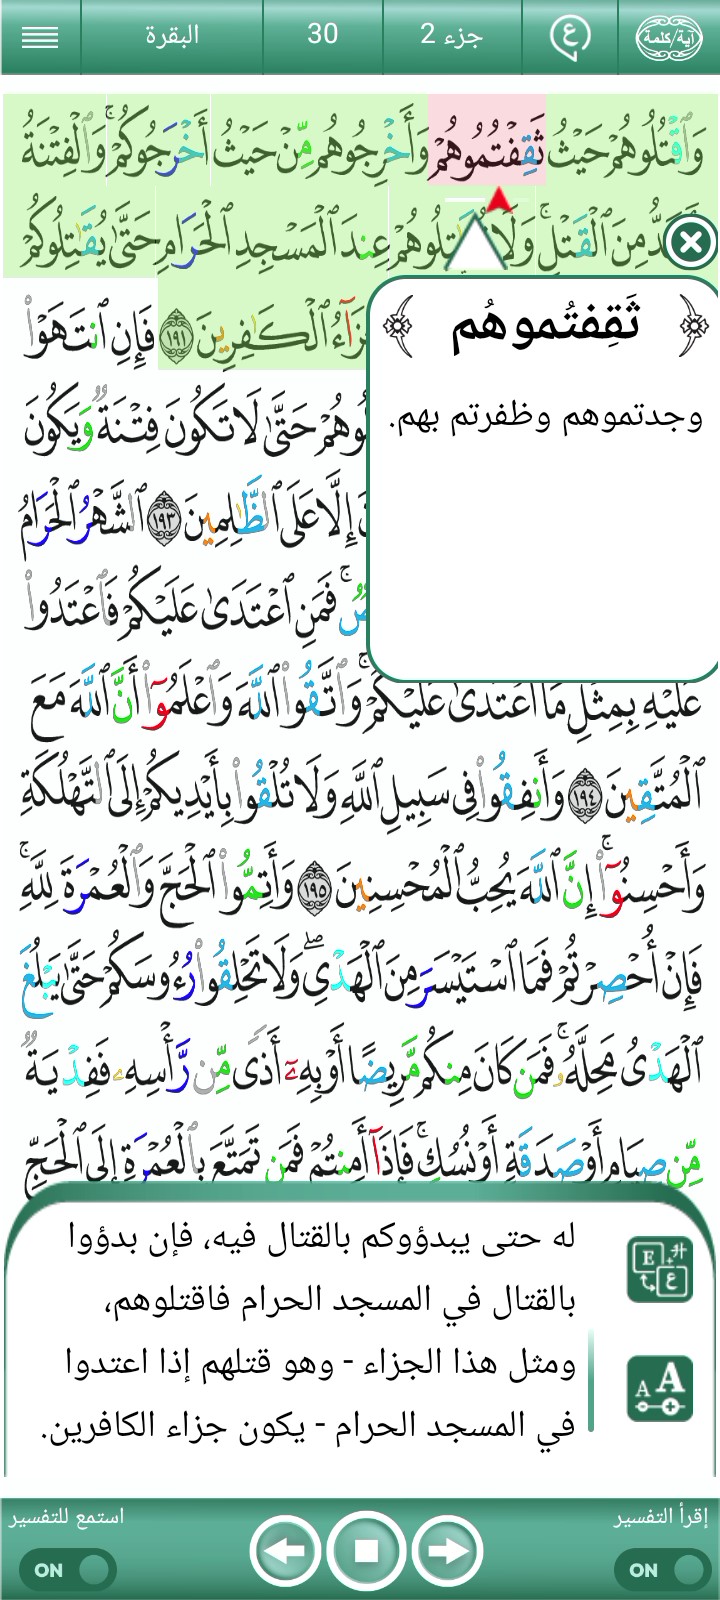 آية/كلمة
ع
جزء 2
30
البقرة
وَٱقۡتُلُوهُمۡ حَيۡثُ ثَقِفۡتُمُوهُمۡ وَأَخۡرِجُوهُم مِّنۡ حَيۡثُ أَخۡرَجُوكُمۡۚ وَٱلۡفِتۡنَةُ
مِنَ ٱلۡقَتۡلِۚ وَلَا تُقَٰتِلُوهُمۡ عِندَ ٱلۡمَسۡجِدِ ٱلۡحَرَامِ حَتَّىٰ يُقَٰتِلُوكُمۡ
ٱلۡكَٰفِرِينَ ١٩١ فَإِنِ ٱنتَهَوۡاْ
حَتَّىٰ لَا تَكُونَ فِتۡنَةٞ وَيَكُونَ
إِلَّا عَلَى ٱلظَّٰلِمِينَ ١٩٣ ٱلشَّهۡرُ ٱلۡحَرَامُ
فَمَنِ ٱعۡتَدَىٰ عَلَيۡكُمۡ فَٱعۡتَدُواْ
عَلَيۡهِ بِمِثۡلِ مَا ٱعۡتَدَىٰ عَلَيۡكُمۡۚ وَٱتَّقُواْ ٱللَّهَ وَٱعۡلَمُوٓاْ أَنَّ ٱللَّهَ مَعَ
ٱلۡمُتَّقِينَ ١٩٤ وَأَنفِقُواْ فِي سَبِيلِ ٱللَّهِ وَلَا تُلۡقُواْ بِأَيۡدِيكُمۡ إِلَى ٱلتَّهۡلُكَةِ
وَأَحۡسِنُوٓاْۚ إِنَّ ٱللَّهَ يُحِبُّ ٱلۡمُحۡسِنِينَ ١٩٥ وَأَتِمُّواْ ٱلۡحَجَّ وَٱلۡعُمۡرَةَ لِلَّهِۚ
فَإِنۡ أُحۡصِرۡتُمۡ فَمَا ٱسۡتَيۡسَرَ مِنَ ٱلۡهَدۡيِۖ وَلَا تَحۡلِقُواْ رُءُوسَكُمۡ حَتَّىٰ يَبۡلُغَ
ٱلۡهَدۡيُ مَحِلَّهُۥۚ فَمَن كَانَ مِنكُم مَّرِيضًا أَوۡ بِهِۦٓ أَذٗى مِّن رَّأۡسِهِۦ فَفِدۡيَةٞ
مِّن صِيَامٍ أَوۡ صَدَقَةٍ أَوۡ نُسُكٖۚ فَإِذَآ أَمِنتُمۡ فَمَن تَمَتَّعَ بِٱلۡعُمۡرَةِ إِلَى ٱلۡحَجِّ
ثَقِفتُموهُم
وجدتموهم وظفرتم بهم.
له حتى يبدؤوكم بالقتال فيه، فإن بدؤوا
بالقتال في المسجد الحرام فاقتلوهم،
ومثل هذا الجزاء - وهو قتلهم إذا اعتدوا
في المسجد الحرام - يكون جزاء الكافرين.
E ع
A A
إقرأ التفسير
استمع للتفسير
ON
ON